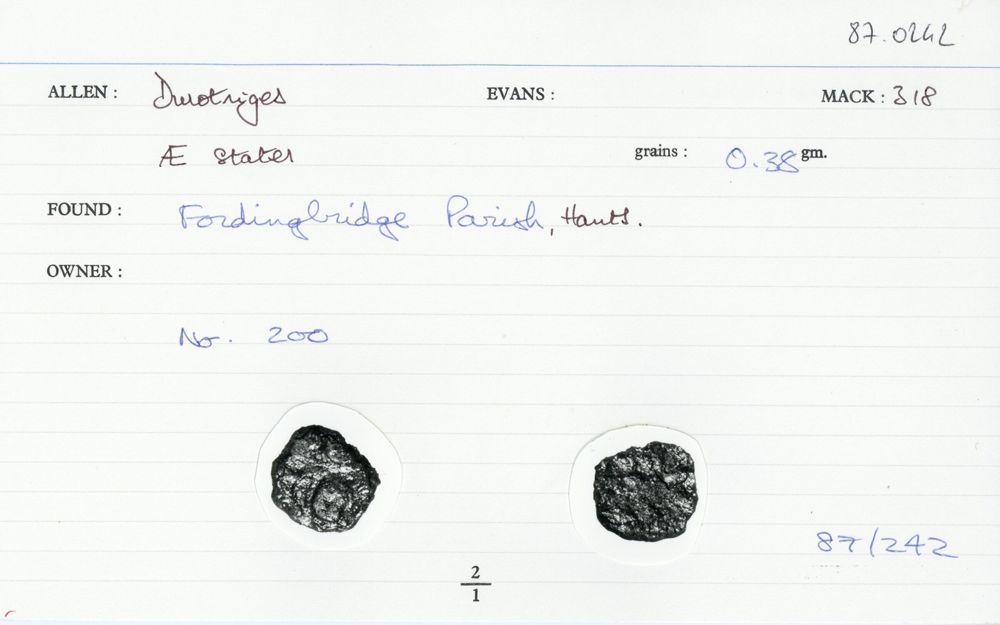 87.0242
ALLEN : Durotriges EVANS : MACK : 318
Æ Stater grains : 0.38 gm.
FOUND : Fordingbridge Parish, Hants.
OWNER :
No. 200
87/242
2
1